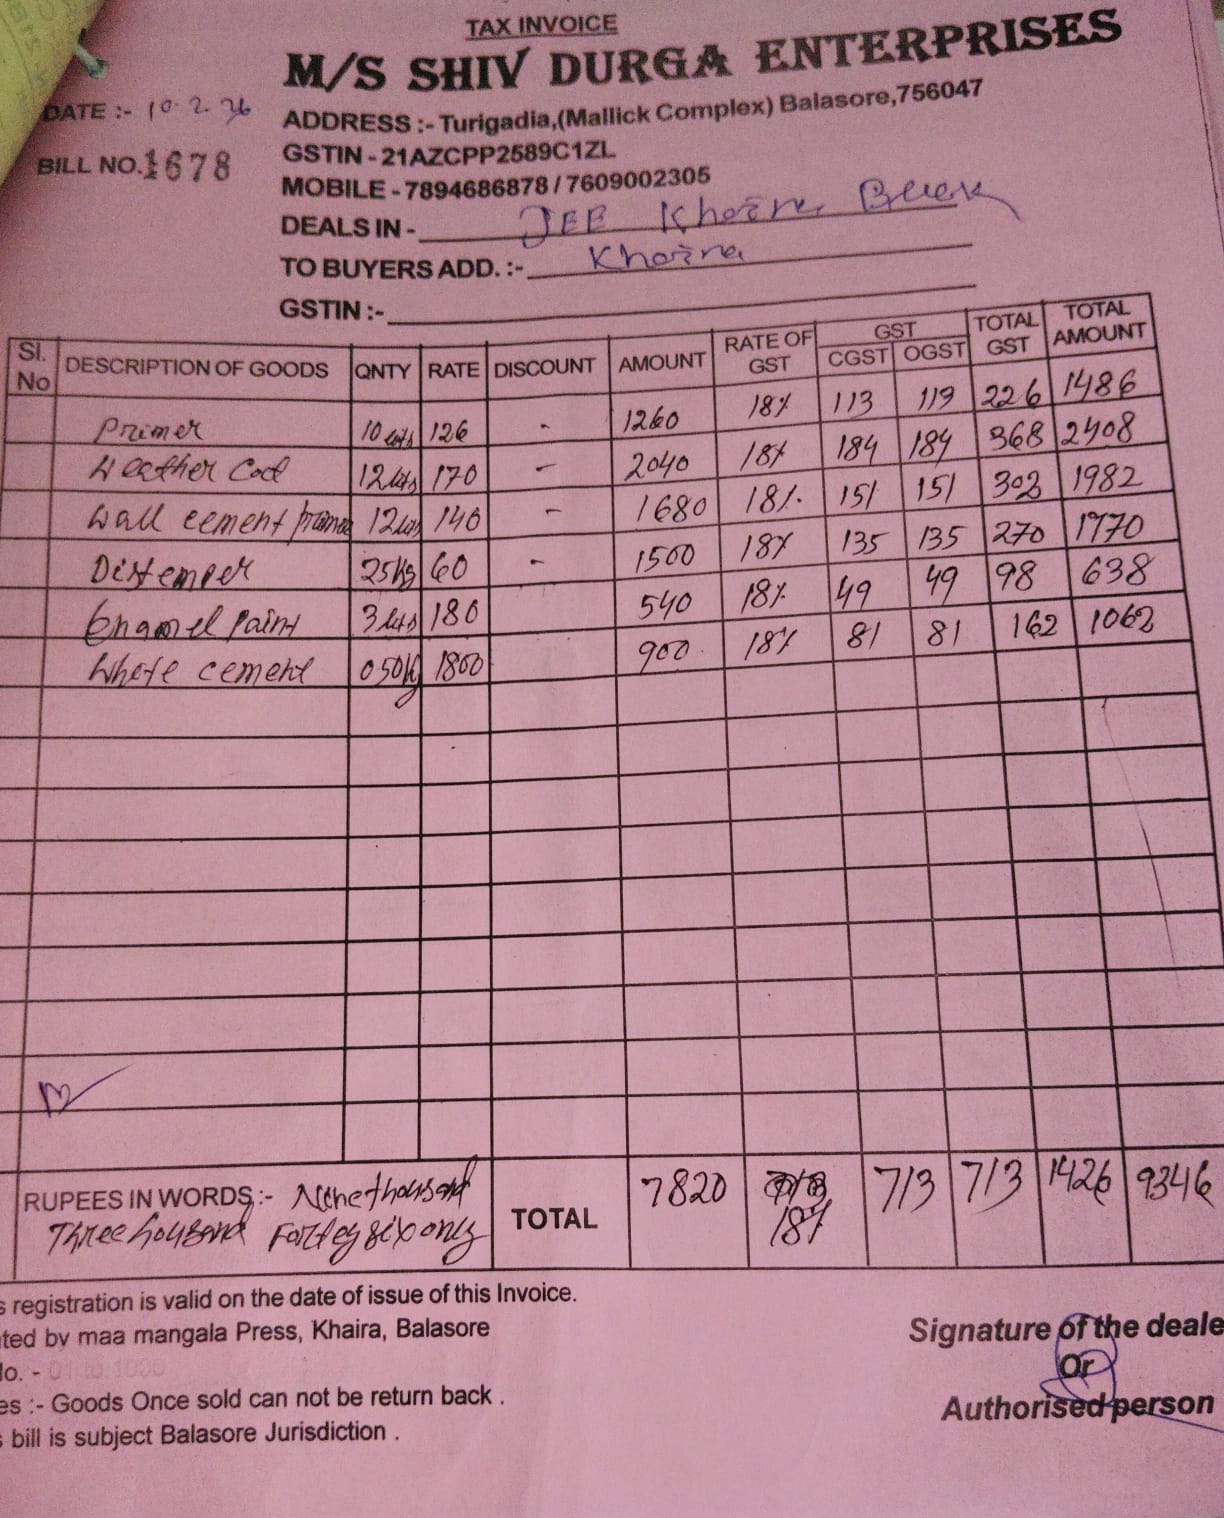 TAX INVOICE
M/S SHIV DURGA ENTERPRISES
DATE :- 10.2.26
ADDRESS :- Turigadia,(Mallick Complex) Balasore,756047
BILL NO. 1678
GSTIN - 21AZCPP2589C1ZL
MOBILE - 7894686878 / 7609002305
DEALS IN - JEE Khaira
TO BUYERS ADD. :- Khaira
GSTIN :-
Sl. No DESCRIPTION OF GOODS QNTY RATE DISCOUNT AMOUNT RATE OF GST GST CGST OGST TOTAL GST TOTAL AMOUNT
Primer 10 lts 126 - 1260 18% 113 113 226 1486
Weather Coat 12 lts 170 - 2040 18% 184 184 368 2408
Wall cement primer 12 lts 140 - 1680 18% 151 151 302 1982
Distemper 25 kg 60 - 1500 18% 135 135 270 1770
Enamel Paint 3 lts 180 540 18% 49 49 98 638
White cement 050 kg 1800 900 18% 81 81 162 1062
RUPEES IN WORDS :- Nine thousand
Three housand Fortey six only
TOTAL 7820 18% 713 713 1426 9346
s registration is valid on the date of issue of this Invoice.
ted by maa mangala Press, Khaira, Balasore
lo. - 01 to 1000
es :- Goods Once sold can not be return back .
s bill is subject Balasore Jurisdiction .
Signature of the deale
Or
Authorised person